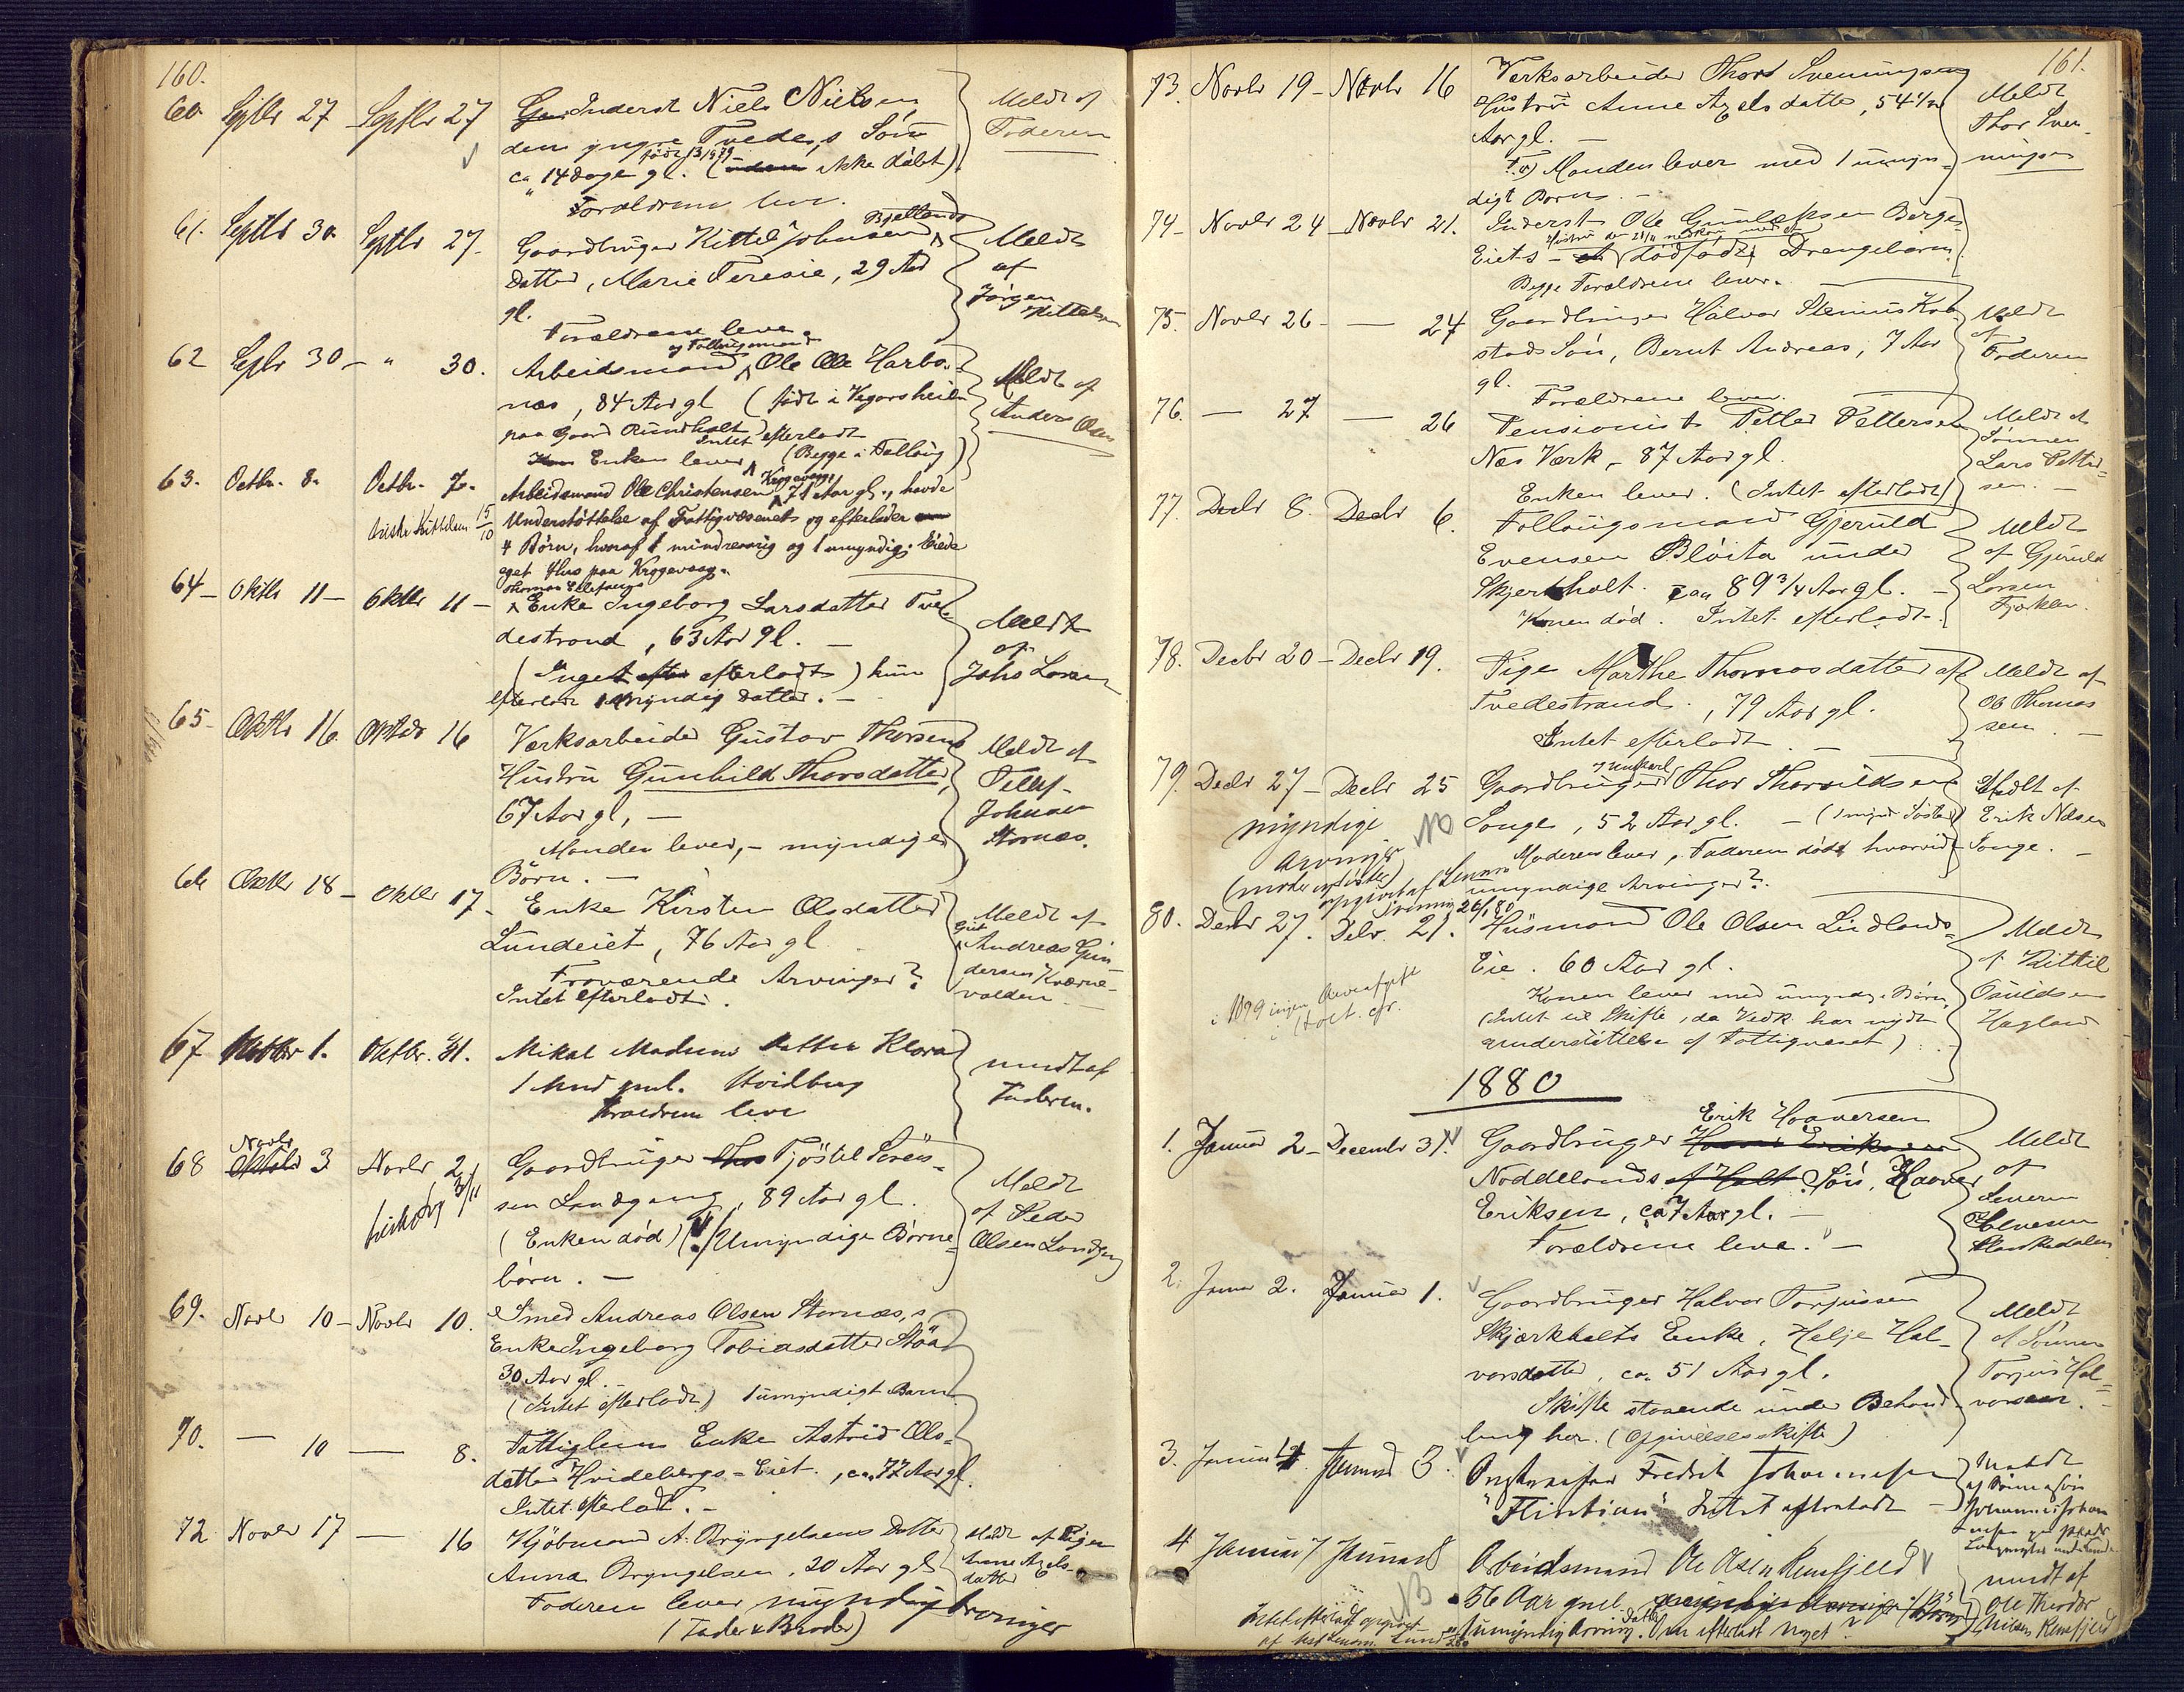 160.
60 Septbr 27 Septbr 27 Inderst Niels Nielsen Meldt af
den yngre Tvedes Søn Faderen
født 13/9 79
ca 14 Dage gl. (ikke døbt)
Forældrene lever.
61. Septbr 30 Septbr 27. Gaardbruger Kittel Johnsen Bjellands Meldt
Datter, Marie Teresie, 29 Aar af
gl. Jørgen Kittelsen
Forældrene lever.
og Føllougsmand
62 Septbr 30 - " 30. Arbeidsmand Ole Ole Harbo- Meldt af
næs, 84 Aar gl (født i Vegorsheien Anders Olsen
paa Gaard Rundholt
Intet efterladt
Enken lever, (Begge i Følloug)
63. Octbr. 8. Octbr. 7. Arbeidsmand Ole Christensen Krogevaag, 71 Aar gl., havde
15/10 Understøttelse af Fattigvæsenet og efterlader
4 Børn, hvoraf 1 mindreaarig og 1 umyndig. Eiede
eget Hus paa Krogevaag.
64 - Oktbr 11 - Oktbr 11 - Enke Ingeborg Larsdatter Tve-
destrand, 63 Aar gl. - Meldt
af
(Inget efterladt) hun Johs Larsen
efterlod 1 myndig Datter. -
65 - Oktbr 16. Oktbr 16 Værksarbeider Gustav Thorsens Meldt af
Hustru Gunhild Thorsdatter, Tellef
67 Aar gl, - Johnsen
Manden lever, - myndige Stornæs.
Børn. -
66 Oktbr 18 - Oktbr 17. Enke Kirsten Olsdatter Meldt af
Lundeiet, 76 Aar gl. Andreas Gun-
Fraværende Arvinger? dersen Kværne-
Intet efterladt. volden
67 1. Oktbr. 31. Mikal Madsens datter Klara meldt af
1 Mnd gml. Hvidberg Faderen.
Forældrene leve
68 Novbr 3 Novbr 2 Gaardbruger Tjøstel Søren- Meldt
sen Landgang, 89 Aar gl. af Peder
(Enken død) Umyndige Børne- Olsen Landgang
børn. -
69. Novbr 10 - Novbr 10. Smed Andreas Olsen Stornæs,s
Enke Ingeborg Tobiasdatter Støa
30 Aar gl.
(Intet efterladt) 1 umyndigt Barn
70. - 10 - 8. Fattiglem Enke Astrid Ols-
datter Hvidebergs-Eiet., ca 77 Aar gl.
Intet efterladt. -
72 Novbr 17 - 16 Kjøbmand A. Bryngelsens Datter Meldt af Pigen
Anna Bryngelsen, 20 Aar gl. Anne Axels-
datter
Faderen lever myndig Arvinger
(Fader & Broder)
161.
73. Novbr 19 - Novbr 16 Værksarbeider Thor Sveningsens Meldt
Hustru Anne Axelsdatter, 54 1/2 Thor Sven-
Aar gl. - ningsen
Manden lever med 1 umyn-
digt Barn. -
74 - Novbr 24 - Novbr 21. Inderst Ole Gunlaksen Berge-
Hustru den 21/11 nedkom med et
Eiets - dødfødt Drengebarn.
Begge Forældrene lever.
75. Novbr 26 - - 24 Gaardbruger Halvor Stenius Kob- Meldt
stads Søn, Bernt Andreas, 7 Aar af
gl. Faderen
Forældrene lever.
76. - 27 - 26 Pensionist Petter Pettersen Meldt af
Næs Værk, - 87 Aar gl. Sønnen
Lars Petter-
Enken lever. (Intet efterladt) sen. -
77. Decbr 8. Decbr 6. Føllougsmand Gjeruld Meldt
Evensen Bløita under af Gjeruld
Skjerkholt. ca 89 3/4 Aar gl. - Larsen
Konen død. Intet efterladt.
78. Decbr 20 - Decbr 19. Pige Marthe Thomasdatter af Meldt af
Tvedestrand, 79 Aar gl. Ole Thomas
Intet efterladt. - sen. -
79. Decbr 27 - Decbr 25 Gaardbruger Ungkarl Thor Thorvildsen Meldt af
myndige Songe, 52 Aar gl. - (1 myndig Søster) Erik Nilsen
Arvinger Moderen lever, Faderen død, hvorvidt Songe. -
(moder og søster) umyndige Arvinger?
80. Decbr 27. Decbr. 21. Husmand Ole Olsen Lindlands- Meldt
Eie. 60 Aar gl. af Kittil
Konen lever med umyndige Børn, Osuldsen
(Intet til Skifte, da Vedk. har nydt Hagland
Understøttelse af Fattigvæsenet).
1880
1. Januar 2 - Decembr 31. Gaardbruger Erik Haaversen Meldt
Noddelands Søn, Haaver af
Eriksen, ca 7 Aar gl. -
Forældrene leve. -
2. Januar 2. Januar 1. Gaardbruger Halvor Torjussen Meldt
Skjærkholts Enke, Helje Hal- af Sønnen
vorsdatter, ca. 51 Aar gl. Torjus Hal-
Skifte staaende under Behand- vorsen.
ling her. (Opgivelsesskifte)
3. Januar Januar 3. Fredrik Johannesen Meldt
Intet efterladt -
4 Januar 7 Januar Arbeidsmand Ole Olsen Remfjeld meldt af
56 Aar gml. Ole Theodor
umyndig Arving. Om efterladt noget? Nilsen Remfjeld